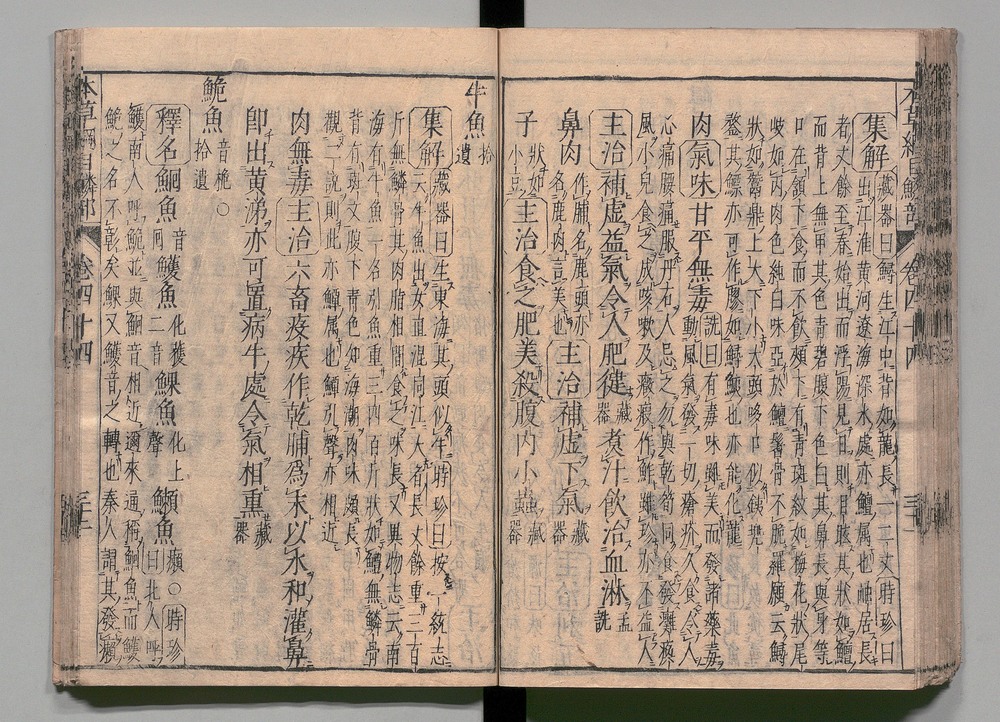 本草綱目鱗部 卷四十四
集解 藏器曰鱘生江中背如龍長一二丈時珍曰
出江淮黃河遼海深水處亦鱣屬也岫居長
者丈餘至春始出而浮陽見日則目眩其狀如鱣
而背上無甲其色青碧腹下色白其鼻長與身等
口在頷下食而不飲頰下有青斑紋如梅花狀尾
岐如丙肉色純白味亞於鱣鬐骨不脆羅願云鱘
狀如鬵鼎上大下小大頭哆口似鐵兜
鍪其鰾亦可作膠如鱁鮧也亦能化龍
肉氣味甘平無毒詵曰有毒味雖美而發諸藥毒
動風氣發一切瘡疥久食令人
心痛腰痛服丹石人忌之勿與乾筍同食發癱瘓
風小兒食之成咳嗽及癥瘕作鮓雖珍亦不益人
主治補虛益氣令人肥健藏器煮汁飲治血淋孟詵
鼻肉作脯名鹿頭亦名鹿肉言美也主治補虛下氣藏器
子狀如小豆主治食之肥美殺腹內小蟲藏器
牛魚拾遺
集解藏器曰生東海其頭似牛時珍曰按一統志
云牛魚出女直混同江大者長丈餘重三百
斤無鱗骨其肉脂相間食之味長又異物志云南
海有牛魚一名引魚重三四百斤狀如鱧無鱗骨
背有斑文腹下青色知海潮肉味頗長
觀二說則此亦鱘屬也鱘引聲亦相近
肉無毒主治六畜疫疾作乾脯為末以水和灌鼻
即出黃涕亦可置病牛處令氣相熏藏器
鮠魚音桅○拾遺
釋名鮰魚音回鱯魚化穫二音鰥魚化上聲鱯魚癩○時珍
曰北人呼
鱯南人呼鮠並與鮰音相近邇來通稱鮰魚而鱯
鮠之名不彰矣鰥又鱯音之轉也秦人謂其發癩
本草綱目鱗部 卷四十四 三十二